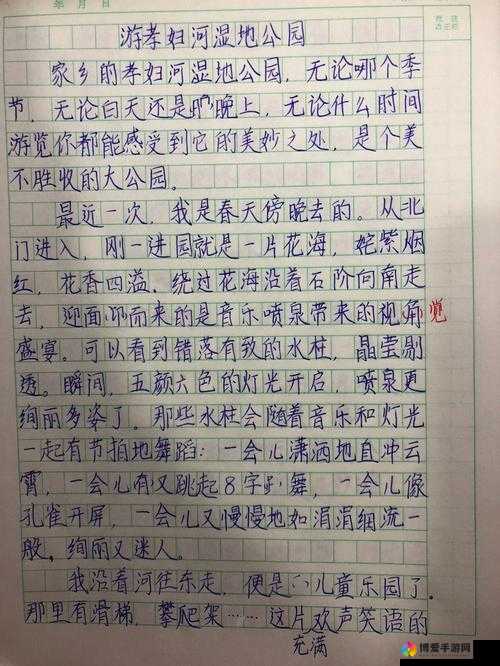 年 月 日
游孝妇河湿地公园
家乡的孝妇河湿地公园，无论哪个季
节，无论白天还是晚上，无论什么时间
游览你都能感受到它的美妙之处，是个美
不胜收的大公园。
最近一次，我是春天傍晚去的。从北
门进入，刚一进园就是一片花海，姹紫烟
红，花香四溢。绕过花海沿着石阶向南走
去，迎面而来的是音乐喷泉带来的视角觉
盛宴。可以看到错落有致的水柱，晶莹剔
透。瞬间，五颜六色的灯光开启，喷泉更
绚丽多姿了。那些水柱会随着音乐和灯光
一起有节拍地舞蹈：一会儿潇洒地直冲云
霄，一会儿又跳起8字舞，一会儿像
孔雀开屏，一会儿又慢慢地如涓涓细流一
般。绚丽又迷人。
我沿着河往东走，便是儿童乐园了。
那里有滑梯，攀爬架……这片欢声笑语的
充满
博爱手游网